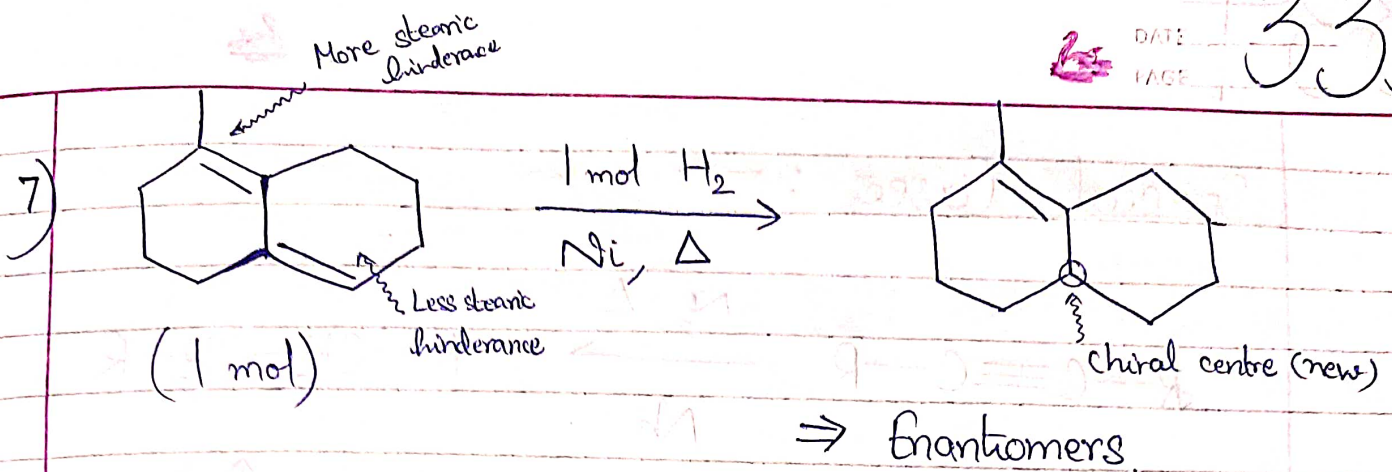 More stearic
hinderace
DATE
PAGE
33
7)
1 mol H₂
Ni, Δ
Less stearic
hinderance
(1 mol)
chiral centre (new)
⇒ Enantiomers